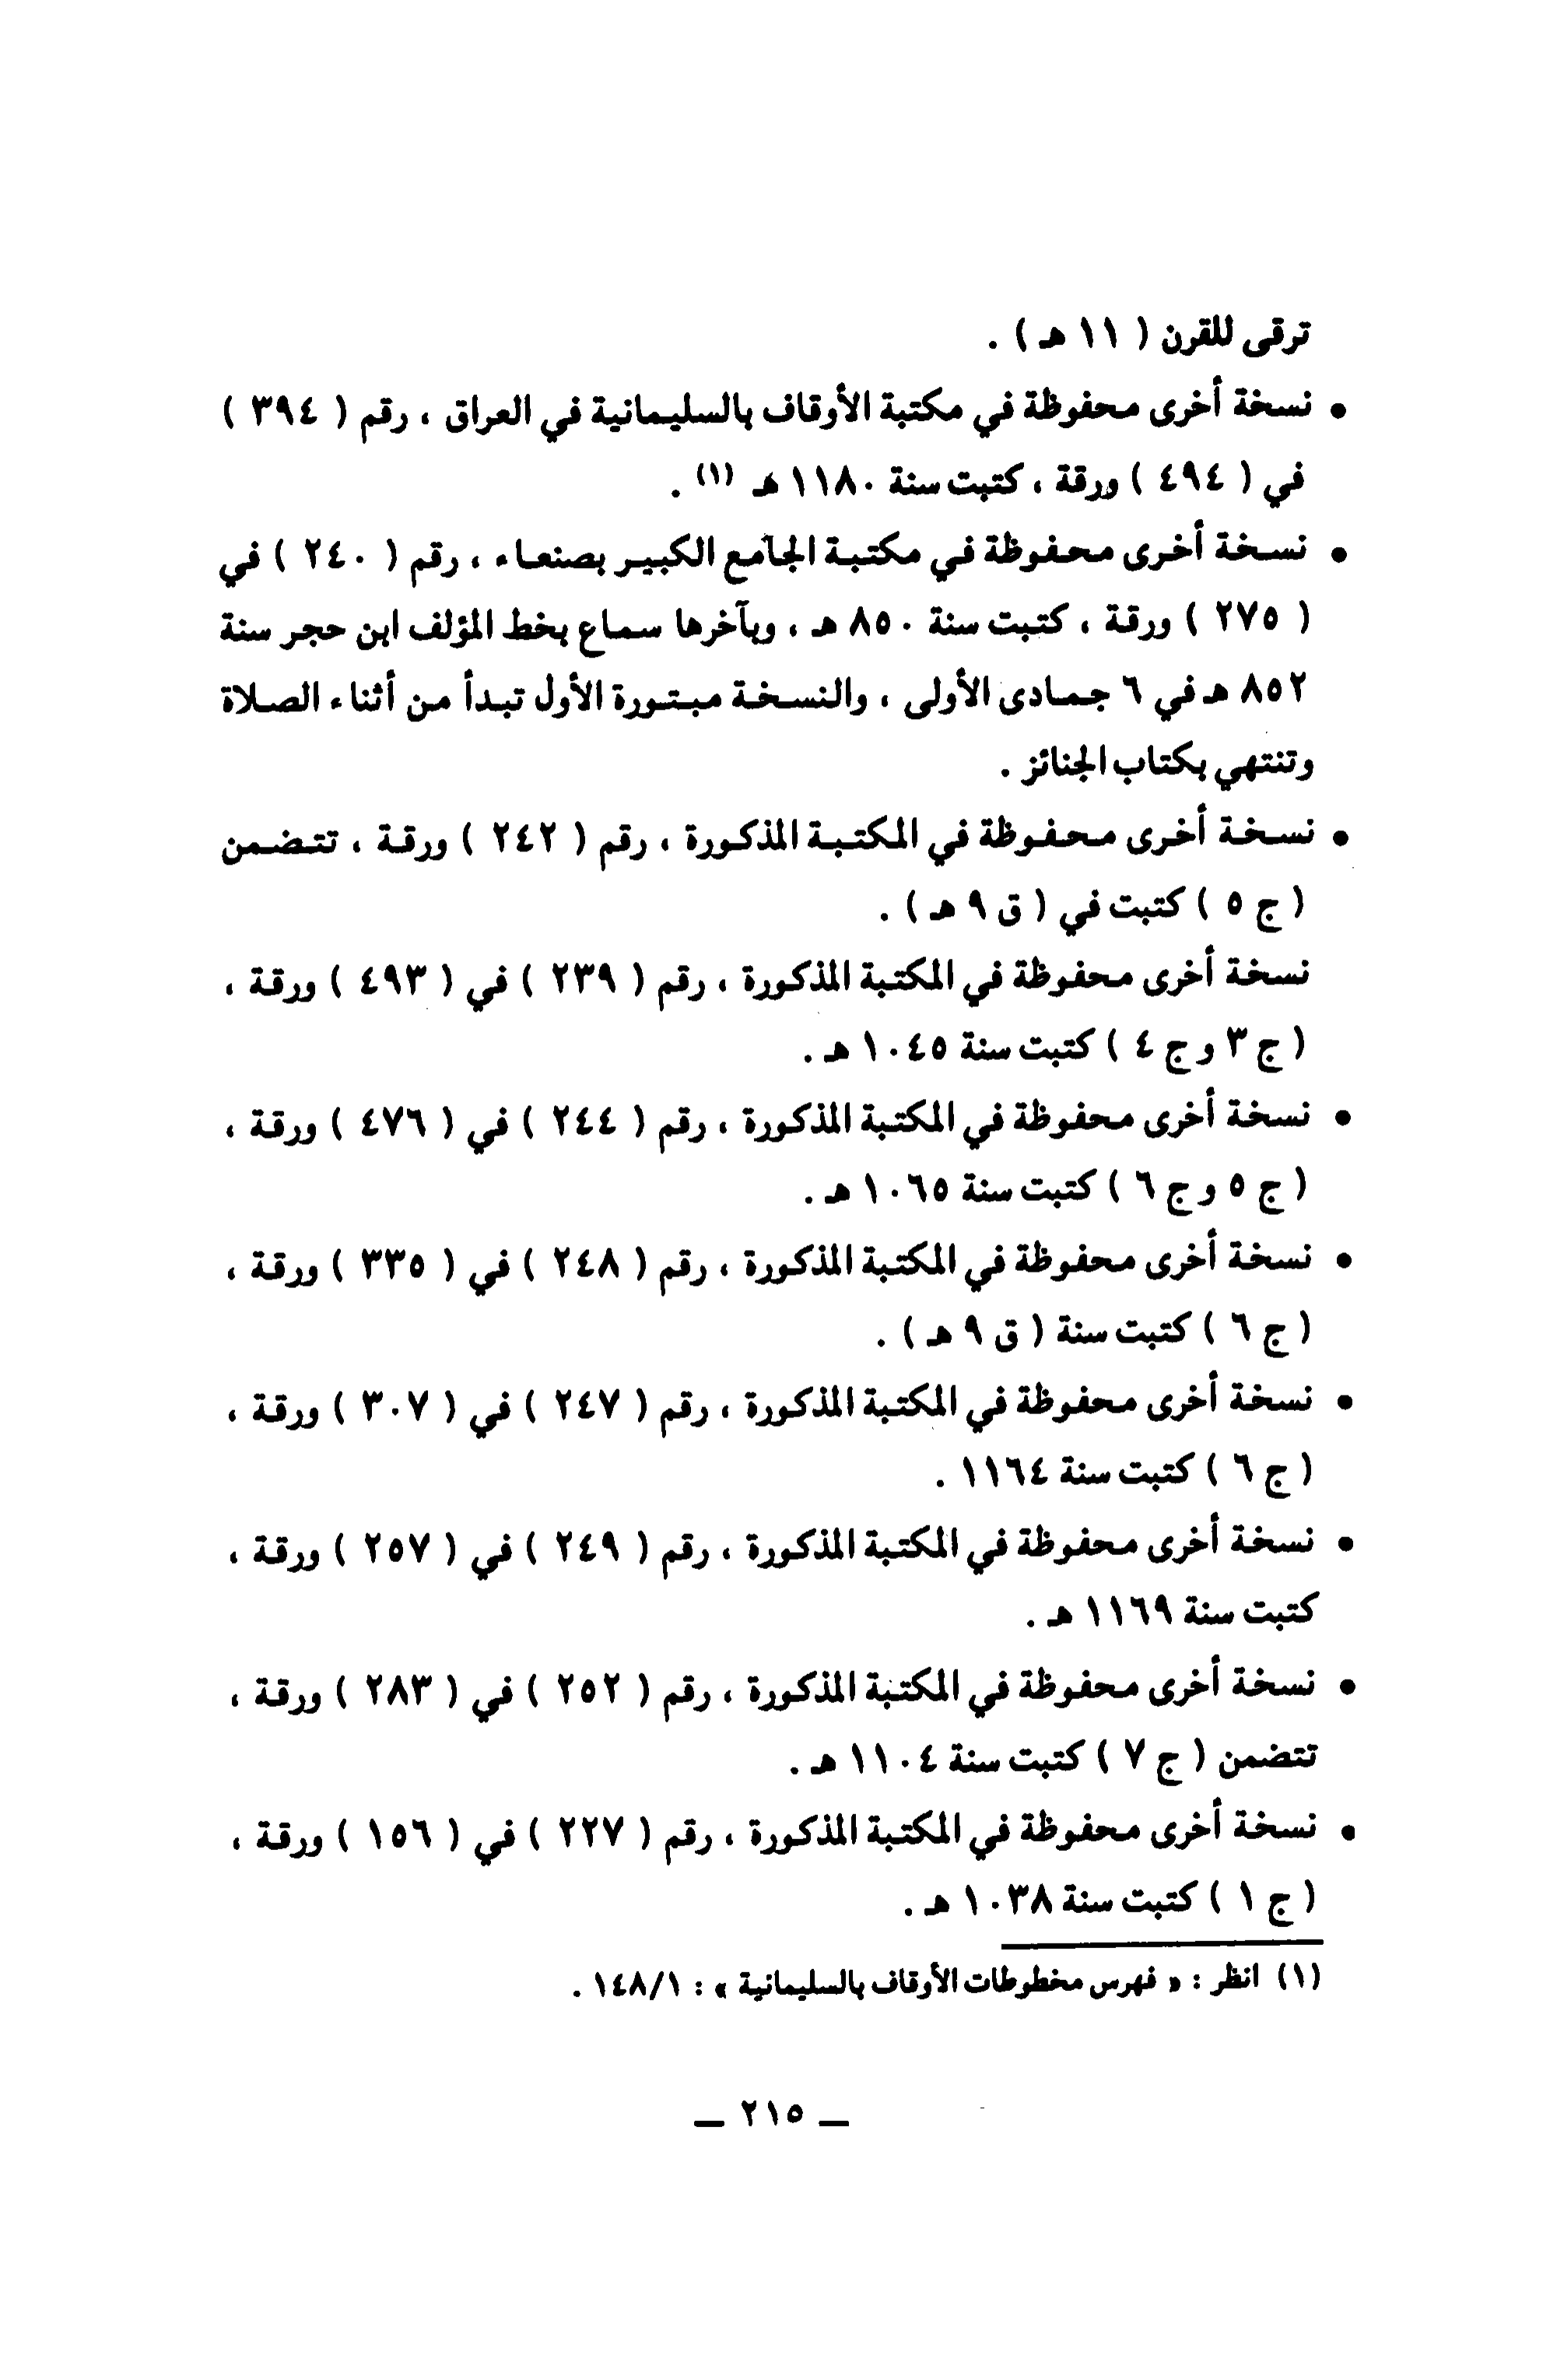 ترقى للقرن ( ١١ هـ ) .
• نسخة أخرى محفوظة في مكتبة الأوقاف بالسليمانية في العراق ، رقم ( ٣٩٤ )
في ( ٤٩٤ ) ورقة ، كتبت سنة ١١٨٠ هـ (١) .
• نسخة أخرى محفوظة في مكتبة الجامع الكبير بصنعاء ، رقم ( ٢٤٠ ) في
( ٢٧٥ ) ورقة ، كتبت سنة ٨٥٠ هـ ، وبآخرها سماع بخط المؤلف ابن حجر سنة
٨٥٢ هـ في ٦ جمادى الأولى ، والنسخة مبتورة الأول تبدأ من أثناء الصلاة
وتنتهي بكتاب الجنائز .
• نسخة أخرى محفوظة في المكتبة المذكورة ، رقم ( ٢٤٢ ) ورقة ، تتضمن
( ج ٥ ) كتبت في ( ق ٩ هـ ) .
نسخة أخرى محفوظة في المكتبة المذكورة ، رقم ( ٢٣٩ ) في ( ٤٩٣ ) ورقة ،
( ج ٣ و ج ٤ ) كتبت سنة ١٠٤٥ هـ .
• نسخة أخرى محفوظة في المكتبة المذكورة ، رقم ( ٢٤٤ ) في ( ٤٧٦ ) ورقة ،
( ج ٥ و ج ٦ ) كتبت سنة ١٠٦٥ هـ .
• نسخة أخرى محفوظة في المكتبة المذكورة ، رقم ( ٢٤٨ ) في ( ٣٣٥ ) ورقة ،
( ج ٦ ) كتبت سنة ( ق ٩ هـ ) .
• نسخة أخرى محفوظة في المكتبة المذكورة ، رقم ( ٢٤٧ ) في ( ٣٠٧ ) ورقة ،
( ج ٦ ) كتبت سنة ١١٦٤ .
• نسخة أخرى محفوظة في المكتبة المذكورة ، رقم ( ٢٤٩ ) في ( ٢٥٧ ) ورقة ،
كتبت سنة ١١٦٩ هـ .
• نسخة أخرى محفوظة في المكتبة المذكورة ، رقم ( ٢٥٢ ) في ( ٢٨٣ ) ورقة ،
تتضمن ( ج ٧ ) كتبت سنة ١١٠٤ هـ .
• نسخة أخرى محفوظة في المكتبة المذكورة ، رقم ( ٢٢٧ ) في ( ١٥٦ ) ورقة ،
( ج ١ ) كتبت سنة ١٠٣٨ هـ .
(١) انظر : « فهرس مخطوطات الأوقاف بالسليمانية » : ١/١٤٨ .
ــ ٢١٥ ــ